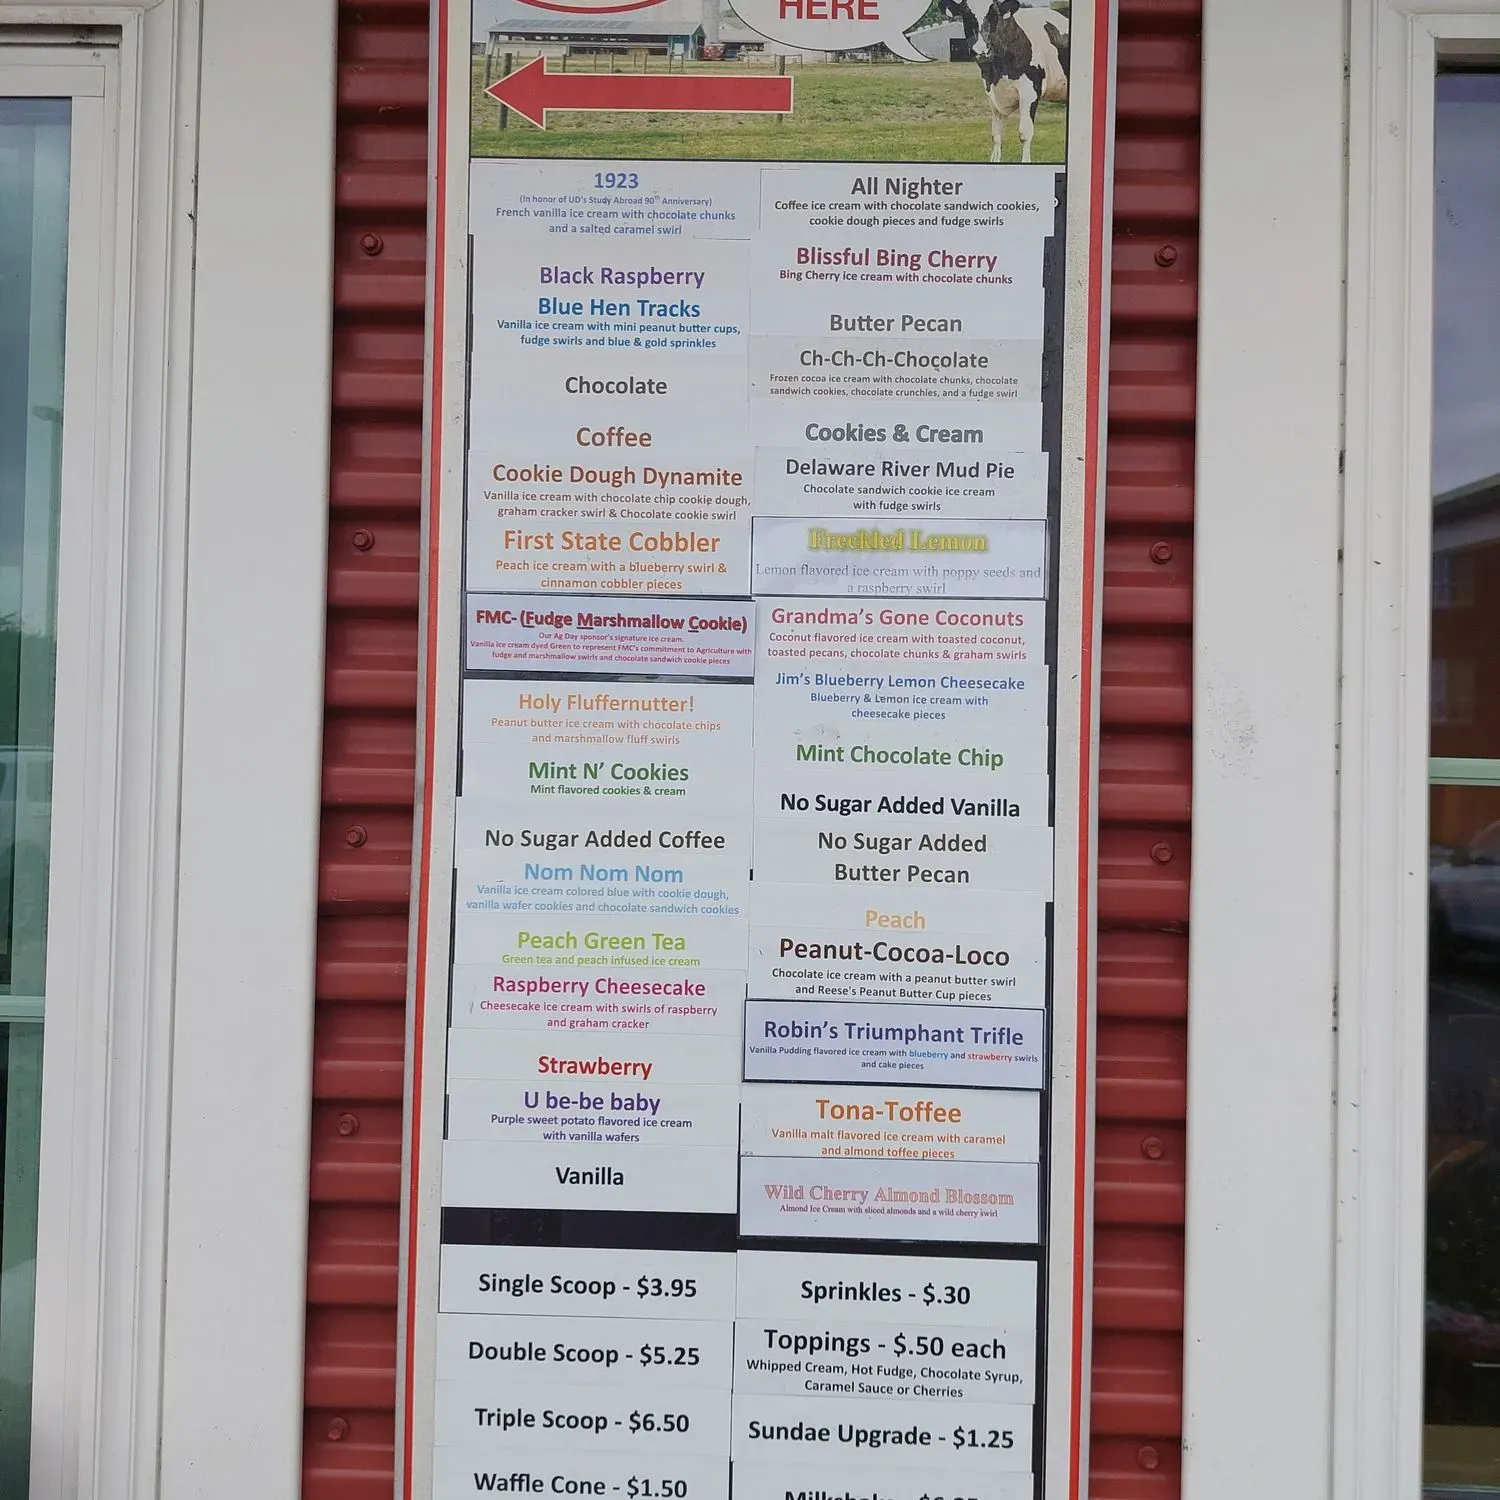 HERE
1923
(In honor of UD's Study Abroad 90th Anniversary)
French vanilla ice cream with chocolate chunks
and a salted caramel swirl
Black Raspberry
Blue Hen Tracks
Vanilla ice cream with mini peanut butter cups,
fudge swirls and blue & gold sprinkles
Chocolate
Coffee
Cookie Dough Dynamite
Vanilla ice cream with chocolate chip cookie dough,
graham cracker swirl & Chocolate cookie swirl
First State Cobbler
Peach ice cream with a blueberry swirl &
cinnamon cobbler pieces
FMC- (Fudge Marshmallow Cookie)
Our Ag Day sponsor's signature ice cream.
Vanilla ice cream dyed Green to represent FMC's commitment to Agriculture with
fudge and marshmallow swirls and chocolate sandwich cookie pieces
Holy Fluffernutter!
Peanut butter ice cream with chocolate chips
and marshmallow fluff swirls
Mint N' Cookies
Mint flavored cookies & cream
No Sugar Added Coffee
Nom Nom Nom
Vanilla ice cream colored blue with cookie dough,
vanilla wafer cookies and chocolate sandwich cookies
Peach Green Tea
Green tea and peach infused ice cream
Raspberry Cheesecake
Cheesecake ice cream with swirls of raspberry
and graham cracker
Strawberry
U be-be baby
Purple sweet potato flavored ice cream
with vanilla wafers
Vanilla
All Nighter
Coffee ice cream with chocolate sandwich cookies,
cookie dough pieces and fudge swirls
Blissful Bing Cherry
Bing Cherry ice cream with chocolate chunks
Butter Pecan
Ch-Ch-Ch-Chocolate
Frozen cocoa ice cream with chocolate chunks, chocolate
sandwich cookies, chocolate crunchies, and a fudge swirl
Cookies & Cream
Delaware River Mud Pie
Chocolate sandwich cookie ice cream
with fudge swirls
Freckled Lemon
Lemon flavored ice cream with poppy seeds and
a raspberry swirl
Grandma's Gone Coconuts
Coconut flavored ice cream with toasted coconut,
toasted pecans, chocolate chunks & graham swirls
Jim's Blueberry Lemon Cheesecake
Blueberry & Lemon ice cream with
cheesecake pieces
Mint Chocolate Chip
No Sugar Added Vanilla
No Sugar Added
Butter Pecan
Peach
Peanut-Cocoa-Loco
Chocolate ice cream with a peanut butter swirl
and Reese's Peanut Butter Cup pieces
Robin's Triumphant Trifle
Vanilla Pudding flavored ice cream with blueberry and strawberry swirls
and cake pieces
Tona-Toffee
Vanilla malt flavored ice cream with caramel
and almond toffee pieces
Wild Cherry Almond Blossom
Almond Ice Cream with sliced almonds and a wild cherry swirl
Single Scoop - $3.95
Double Scoop - $5.25
Triple Scoop - $6.50
Waffle Cone - $1.50
Sprinkles - $.30
Toppings - $.50 each
Whipped Cream, Hot Fudge, Chocolate Syrup,
Caramel Sauce or Cherries
Sundae Upgrade - $1.25